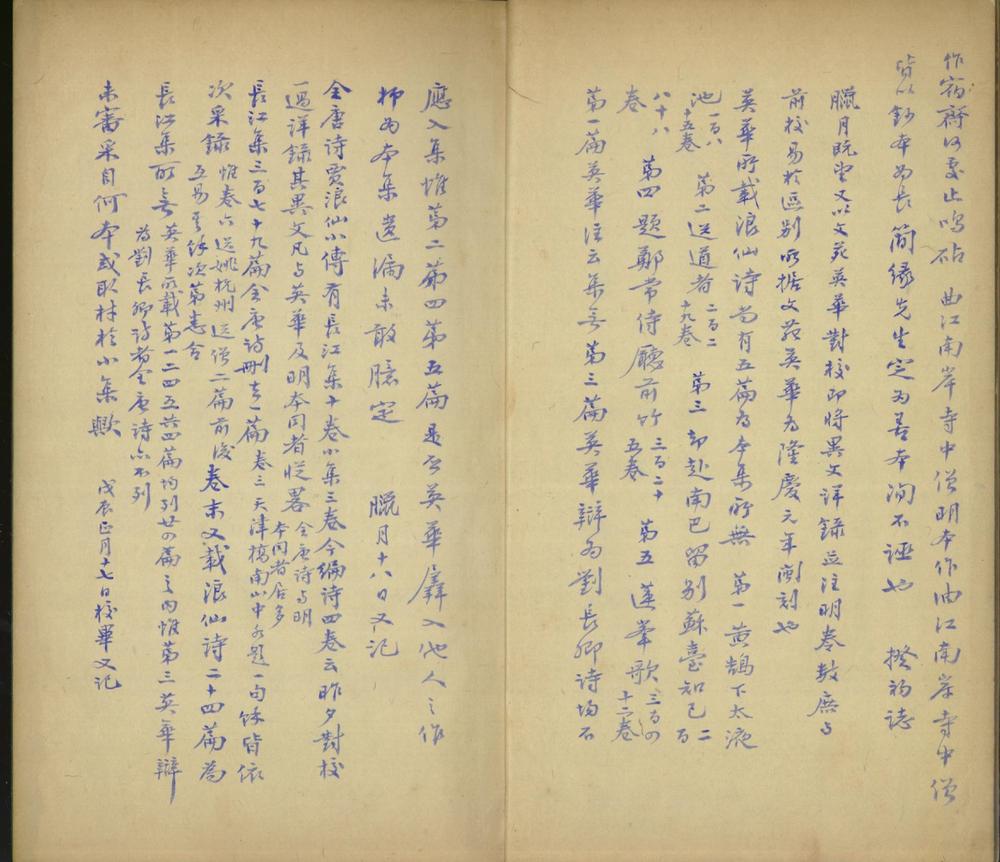 作宿齋何處止鳴砧 曲江南岸寺中僧明本作油江南岸寺中僧
皆以鈔本為長簡緣先生定為善本洵不誣也 撥初誌
臘月既望又以文苑英華對校即將異文詳錄並注明卷數庶與
前校易於區別所據文苑英華為隆慶元年閩刻也
英華所載浪仙詩尚有五篇為本集所無 第一黃鵠下太液
池一百八十五卷 第二送道者二百二十九卷 第三却赴南巴留別蘇臺知己二百
八十八卷 第四題鄭常侍廳前竹三百二十五卷 第五蓮峯歌三百四十二卷
第一篇英華注云集無第三篇英華辯為劉長卿詩均不
應入集惟第二第四第五篇是否英華羼入他人之作
抑為本集遺漏未敢臆定 臘月十八日又記
全唐詩賈浪仙小傳有長江集十卷小集三卷今編詩四卷云昨夕對校
一過詳錄其異文凡與英華及明本同者從畧全唐詩與明本同者居多
長江集三百七十九篇全唐詩刪去一篇卷三天津橋南山中各題一句餘皆依
次采錄惟卷六送姚杭州送僧二篇前後互易其餘次第悉合卷末又載浪仙詩二十四篇為
長江集所無英華所載第一二四五共四篇均列廿四篇之內惟第三英華辯為劉長卿詩者全唐詩亦不列
未審采自何本或取材於小集歟 戊辰正月十七日校畢又記